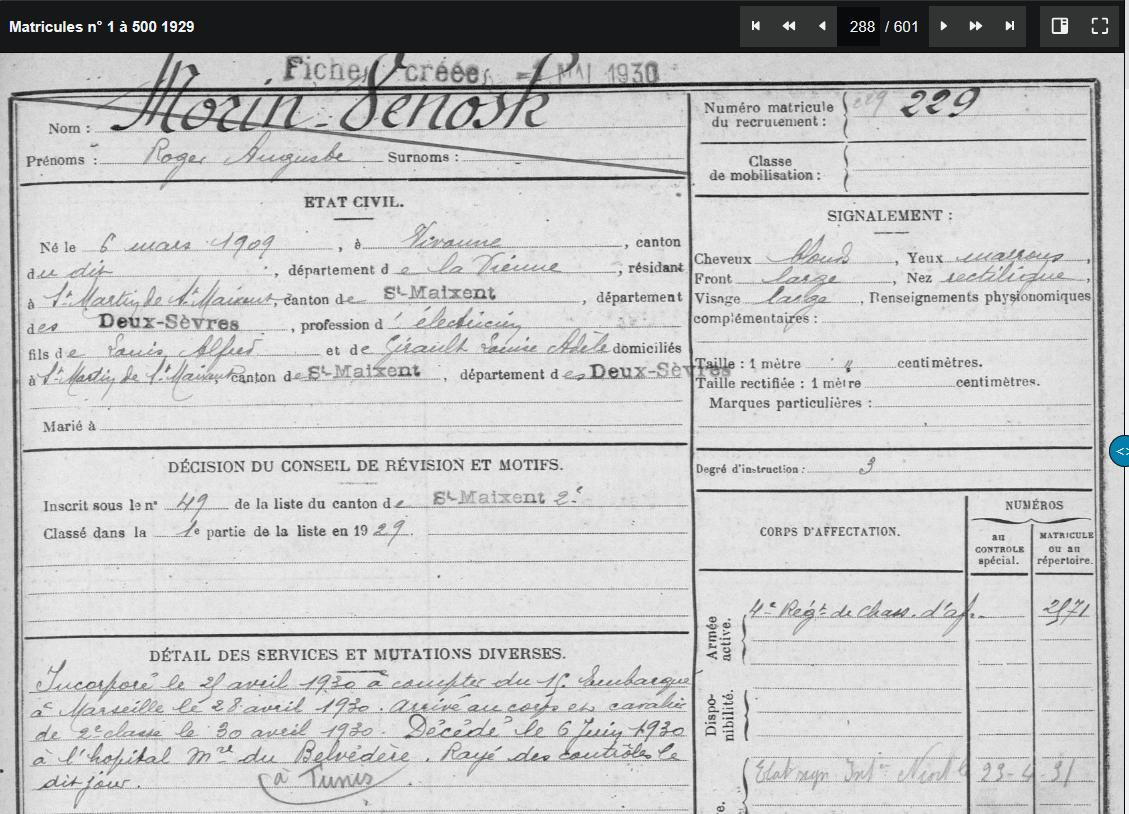 Matricules n° 1 à 500 1929
288 / 601
Fiches créées, - MAI 1930
Nom : Morin-Venosk
Prénoms : Roger Auguste Surnoms :
Numéro matricule du recrutement : 229 229
Classe de mobilisation :
ETAT CIVIL.
Né le 6 mars 1909, à Vivonne, canton
du dit, département de la Vienne, résidant
à St Martin de St Maixent, canton de St-Maixent, département
des Deux-Sèvres, profession d'électricien
fils de Louis Alfred et de Girault Louise Adèle domiciliés
à St Martin de St Maixent, canton de St-Maixent, département des Deux-Sèvres
Marié à
SIGNALEMENT :
Cheveux blonds, Yeux marrons,
Front large, Nez rectiligne,
Visage large, Renseignements physionomiques
complémentaires :
Taille : 1 mètre " centimètres.
Taille rectifiée : 1 mètre centimètres.
Marques particulières :
Degré d'instruction : 3
DÉCISION DU CONSEIL DE RÉVISION ET MOTIFS.
Inscrit sous le n° 49 de la liste du canton de St-Maixent 2e
Classé dans la 1e partie de la liste en 1929.
CORPS D'AFFECTATION.
NUMÉROS
au CONTROLE spécial.
MATRICULE ou au répertoire.
Armée active.
4e Régt de Chass. d'af.
Dispo-
nibilité.
23-4 31
DÉTAIL DES SERVICES ET MUTATIONS DIVERSES.
Incorporé le 25 avril 1930 à compter du 15. Embarqué
à Marseille le 28 avril 1930. Arrivé au corps et cavalier
de 2e classe le 30 avril 1930. Décédé le 6 Juin 1930
à l'hopital Mre du Belvédère. Rayé des contrôles le
dit jour. (à Tunis